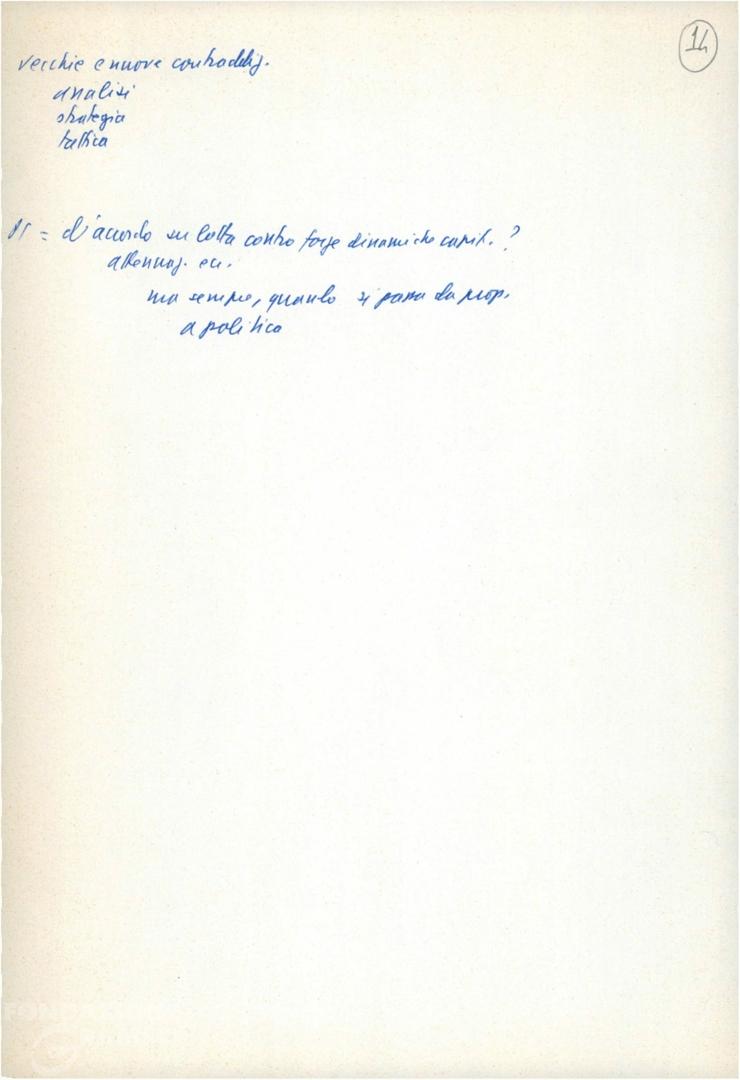 14
vecchie e nuove contraddiz.
analisi
strategia
tattica
= d'accordo su lotta contro forze dinamiche capit. ?
attenuaz. ecc.
ma sempre, quando si passa da prop.
a politica
FONDAZIONE